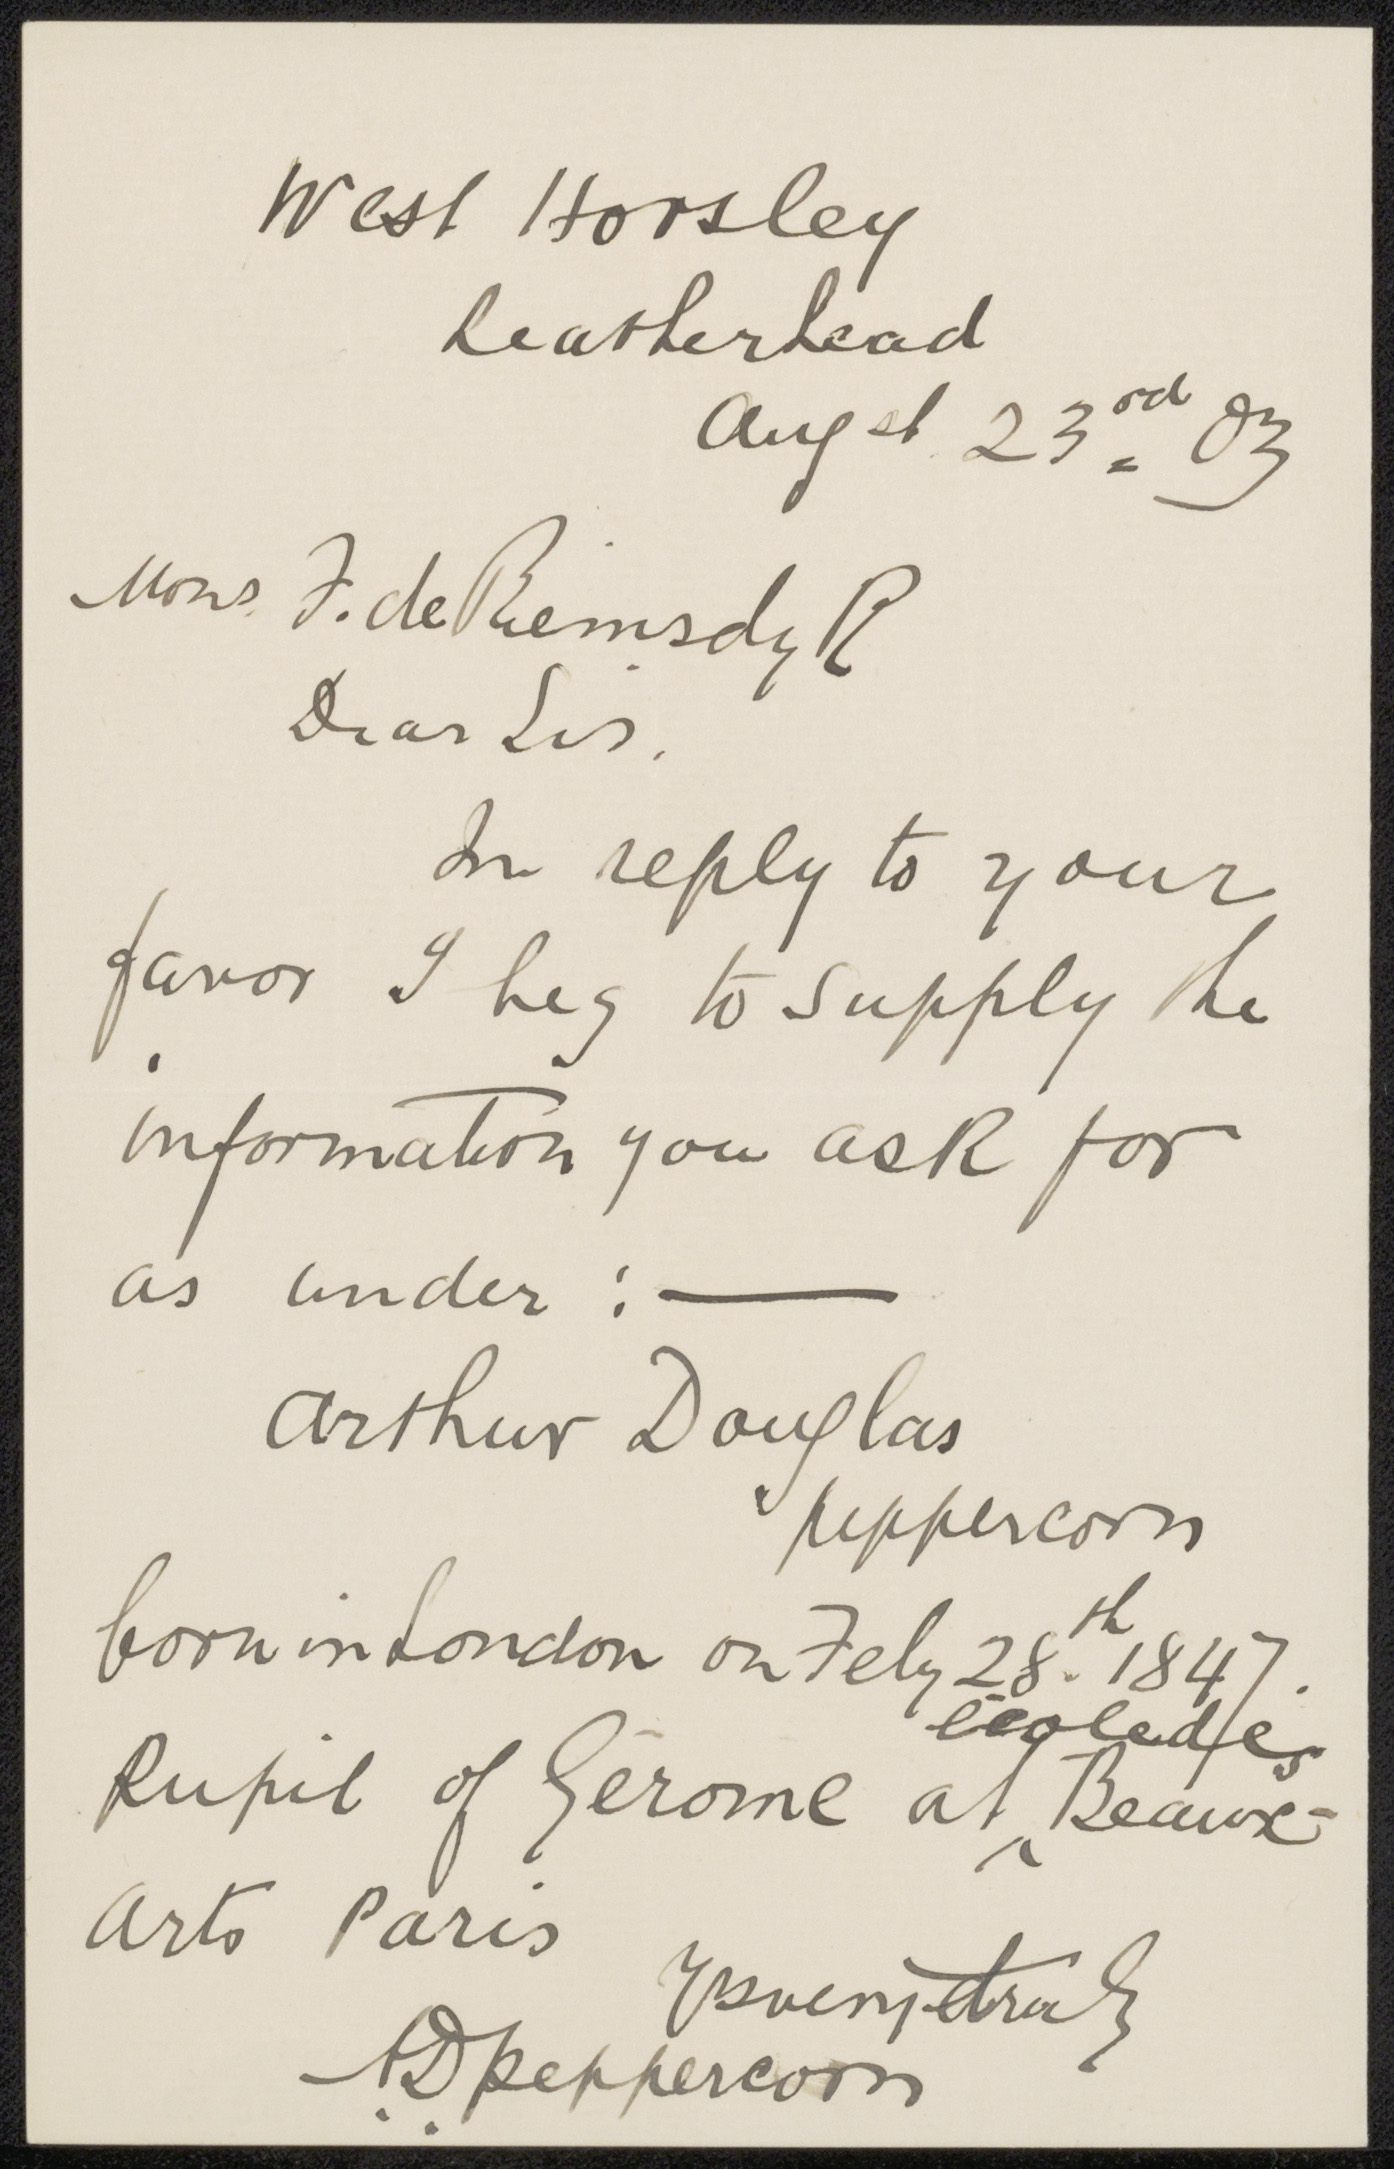 West Horsley
Leatherhead
Augst 23rd 03
Mons. F. de Riemsdyk
Dear Sir,
In reply to your
favor I beg to supply the
information you ask for
as under :—
Arthur Douglas
Peppercorn
born in London on Feby 28th 1847.
école des
Pupil of Gérome at ^ Beaux-
Arts Paris
Yrs very truly
A.D. Peppercorn